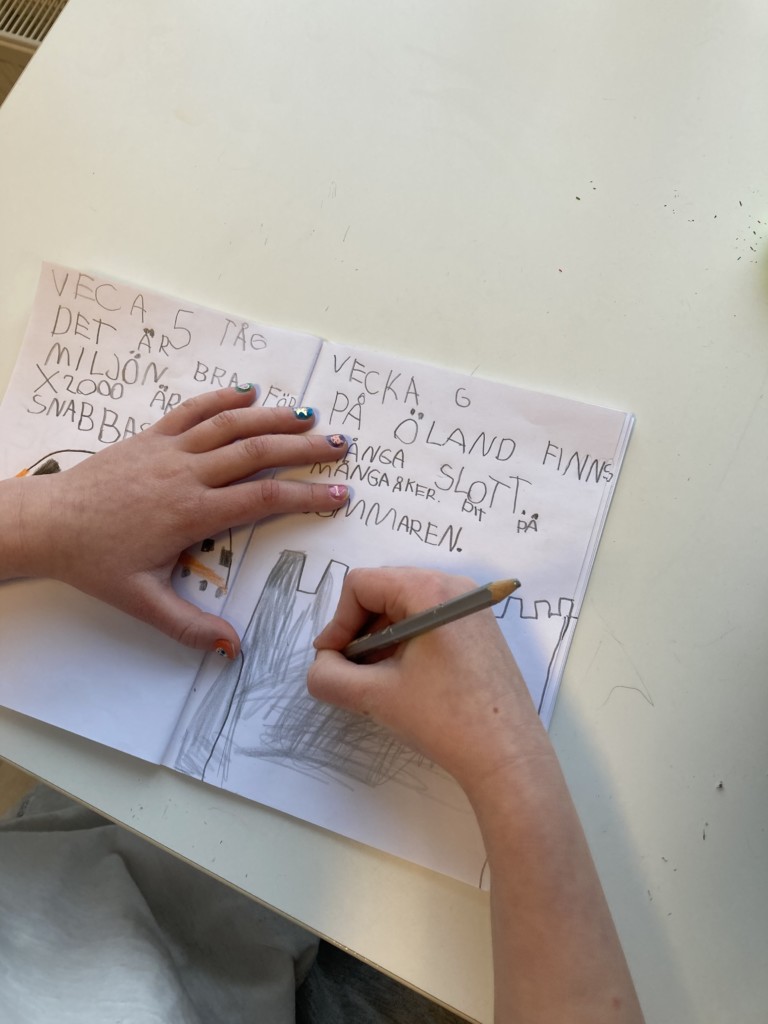 VECA 5 TÅG
DET ÄR
MILJÖN. BRA FÖR
X2000 ÄR
SNABBAS
VECKA 6
PÅ ÖLAND FINNS
MÅNGA SLOTT.
MÅNGA ÅKER. DIT PÅ
SOMMAREN.